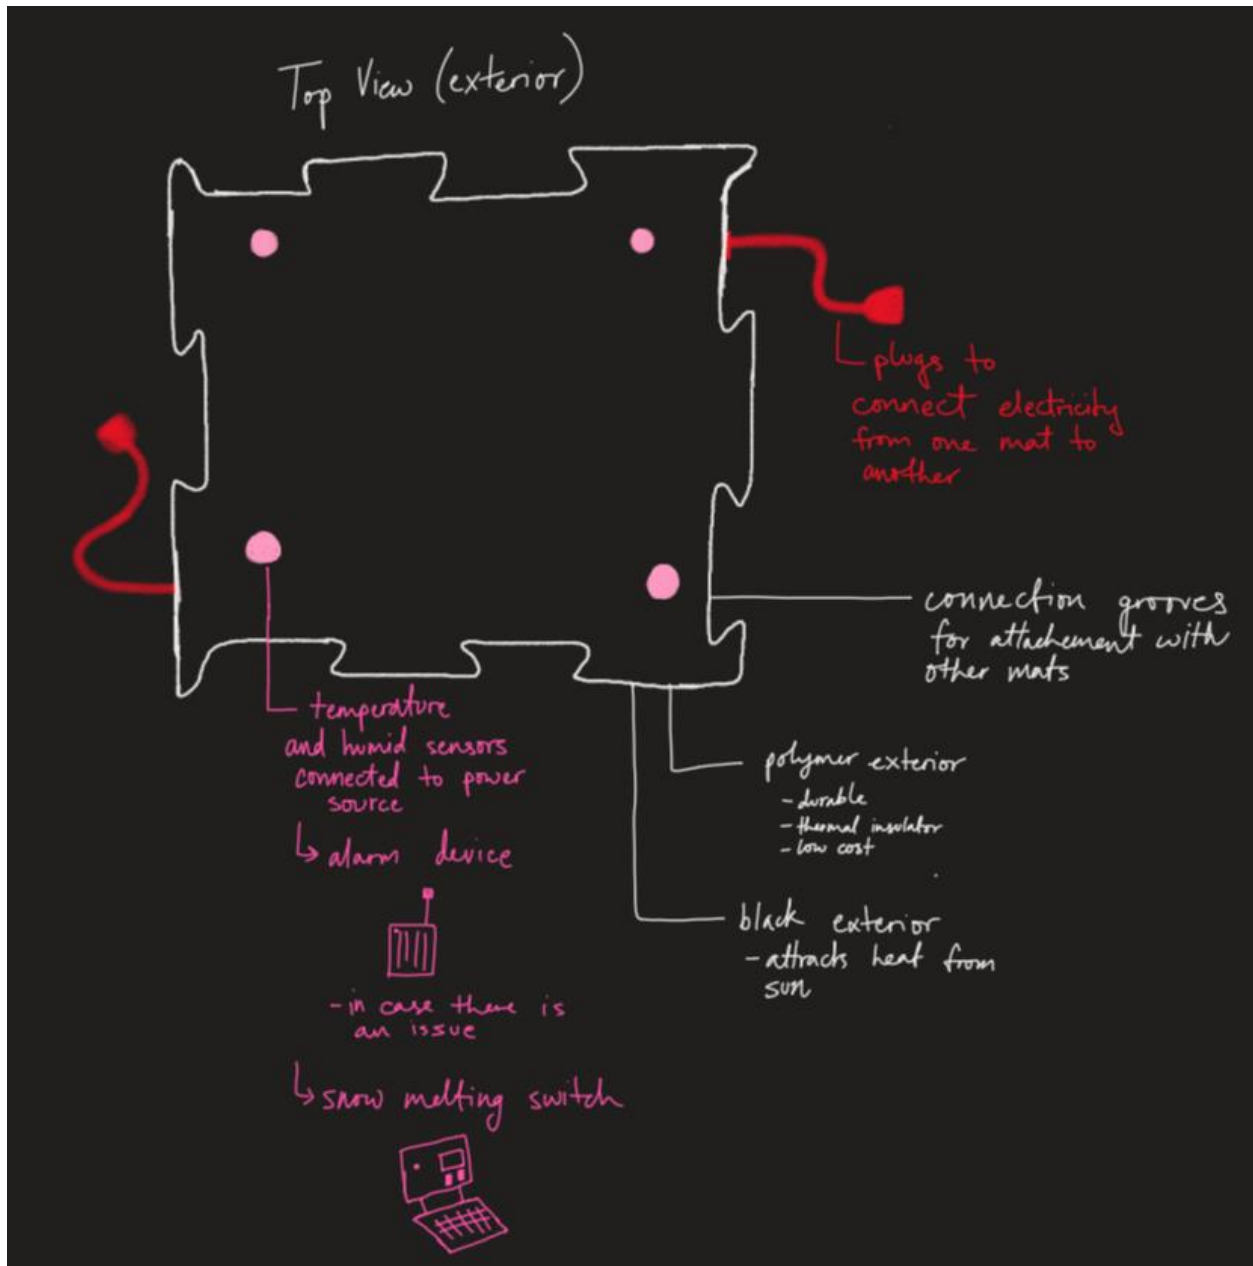 Top View (exterior)
plugs to
connect electricity
from one mat to
another
connection grooves
for attachement with
other mats
temperature
and humid sensors
connected to power
source
↳ alarm device
- in case there is
an issue
↳ snow melting switch
polymer exterior
- durable
- thermal insulator
- low cost
black exterior
- attracts heat from
sun